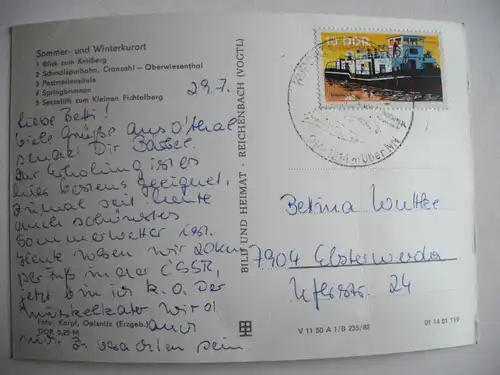 Sommer- und Winterkurort
1 Blick zum Keilberg
2 Schmalspurbahn, Cranzahl – Oberwiesenthal
3 Postmeilensäule
4 Springbrunnen
5 Sessellift zum Kleinen Fichtelberg
29.7.
Liebe Beti!
Viele Grüße aus O'thal
sendet Dir
Zur Erholung ist es
hier bestens geeignet,
zumal seit heute
auch schönstes
Sommerwetter ist.
Heute waren wir 20km
per Fuß in der ČSSR,
jetzt bin ich k.o. Der
Muskelkater wird
auch
nicht zu warten sein
Foto: Karpf, Oelsnitz (Erzgeb.)
DDR 0,25 M
BILD UND HEIMAT · REICHENBACH (VOGTL)
10 DDR
914-1214 m über NN
Betina
7904 Elsterwerda
Uferstr. 24
V 11 50 A 1/B 235/82
01 14 01 119